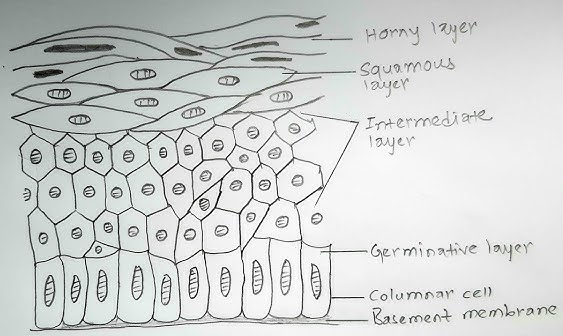 Horny layer
Squamous
layer
Intermediate
layer
Germinative layer
Columnar cell
Basement membrane